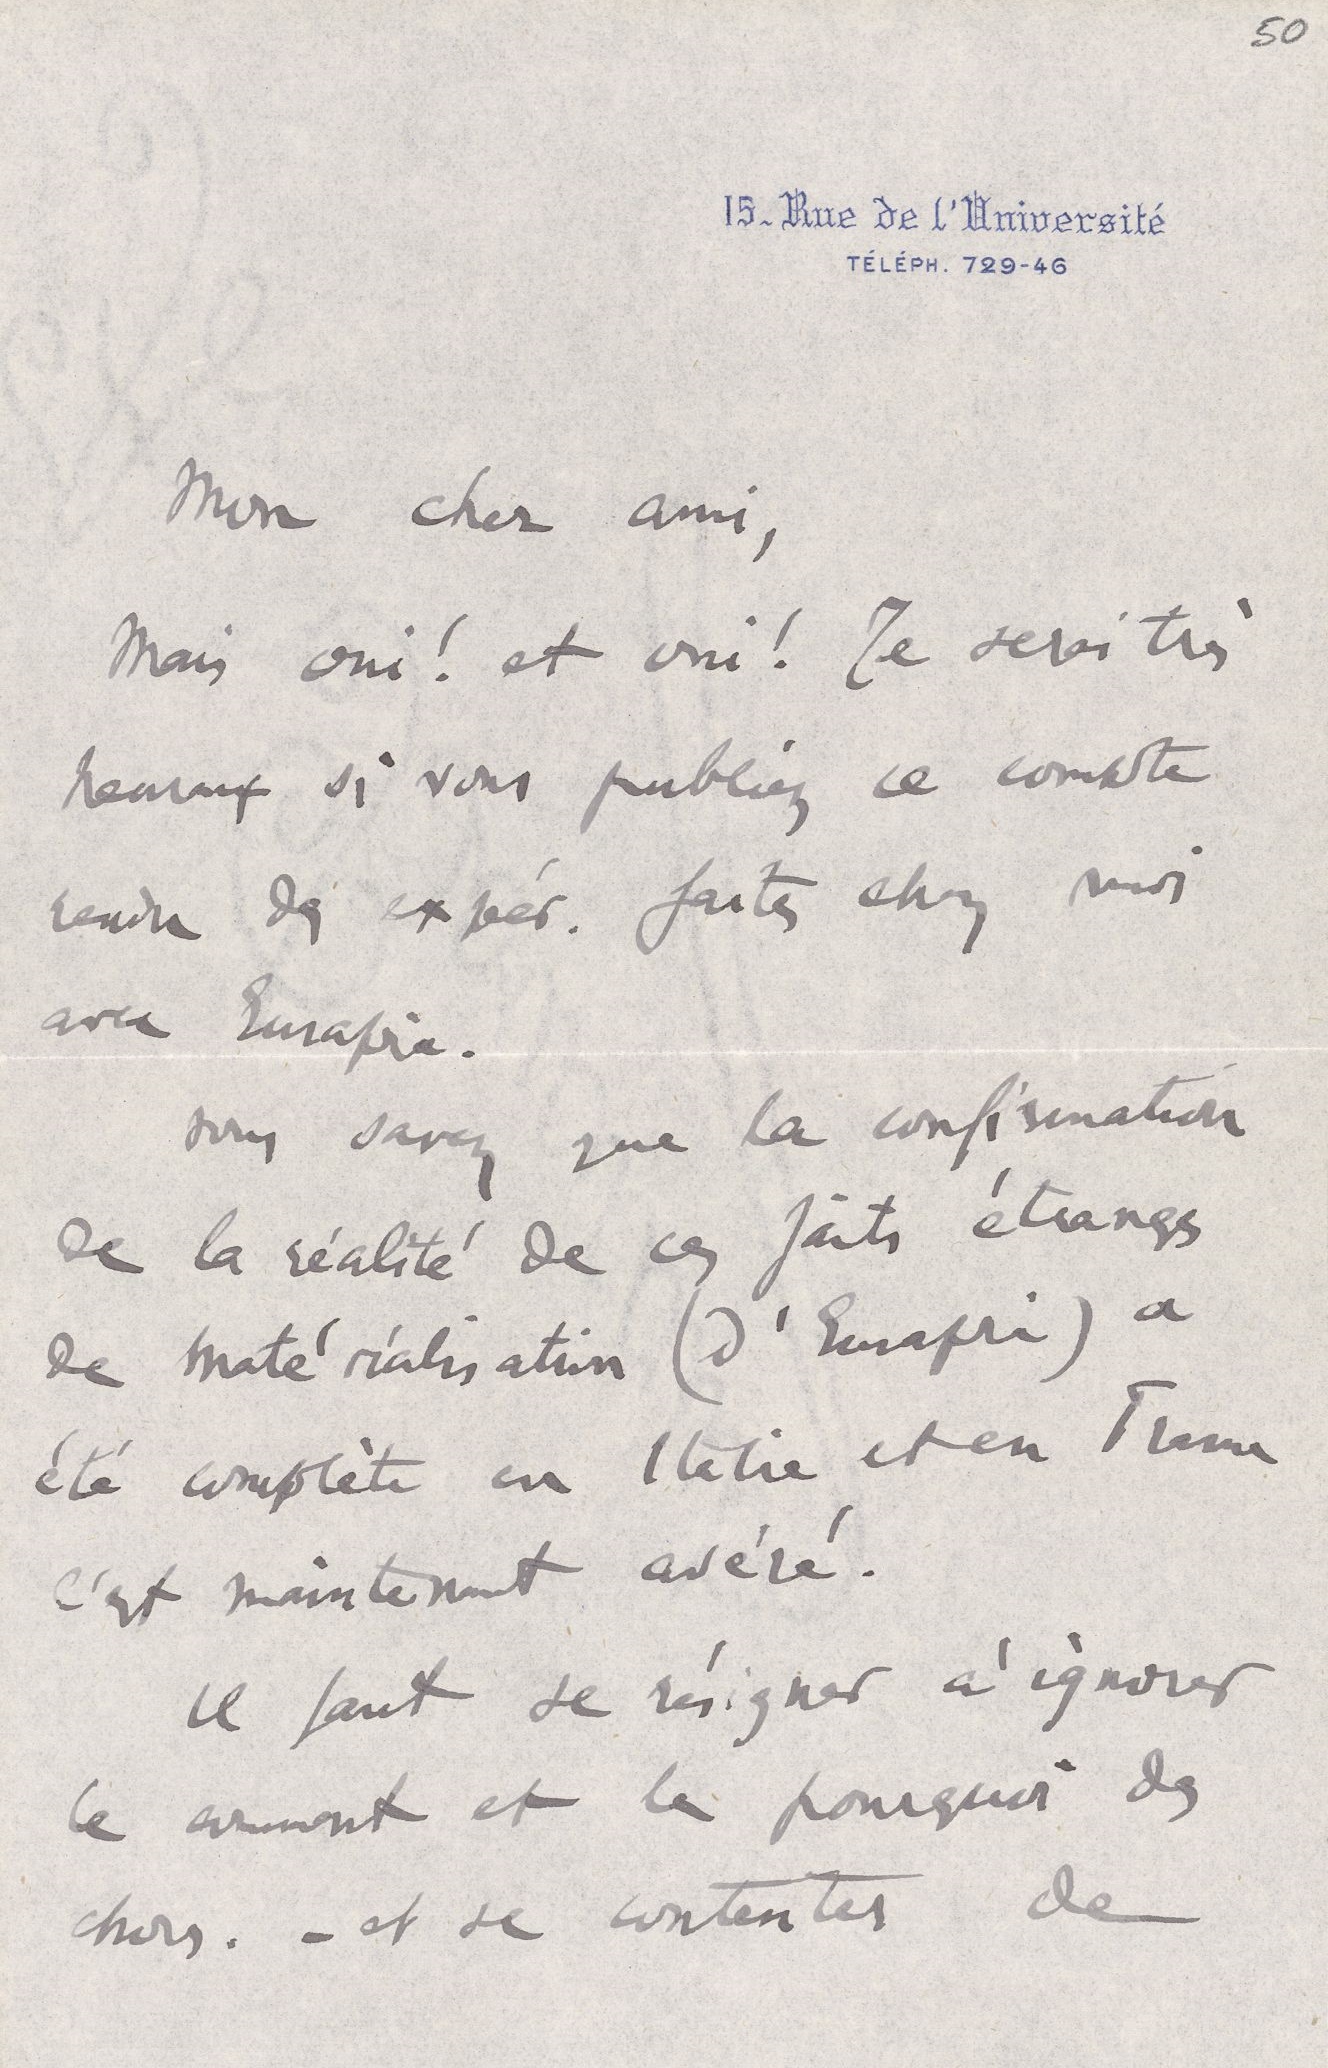 50
15. Rue de l'Université
TÉLÉPH. 729-46
Mon cher ami,
Mais oui! et oui! Je serai très
heureux si vous publiez ce compte
rendu des expér. faites chez moi
avec Eusapia.
Vous savez que la confirmation
de la réalité de ces faits étranges
de matérialisation (d'Eusapia) a
été complète en Italie et en France
C'est maintenant avéré.
Il faut se résigner à ignorer
le comment et le pourquoi des
choses. - et se contenter de